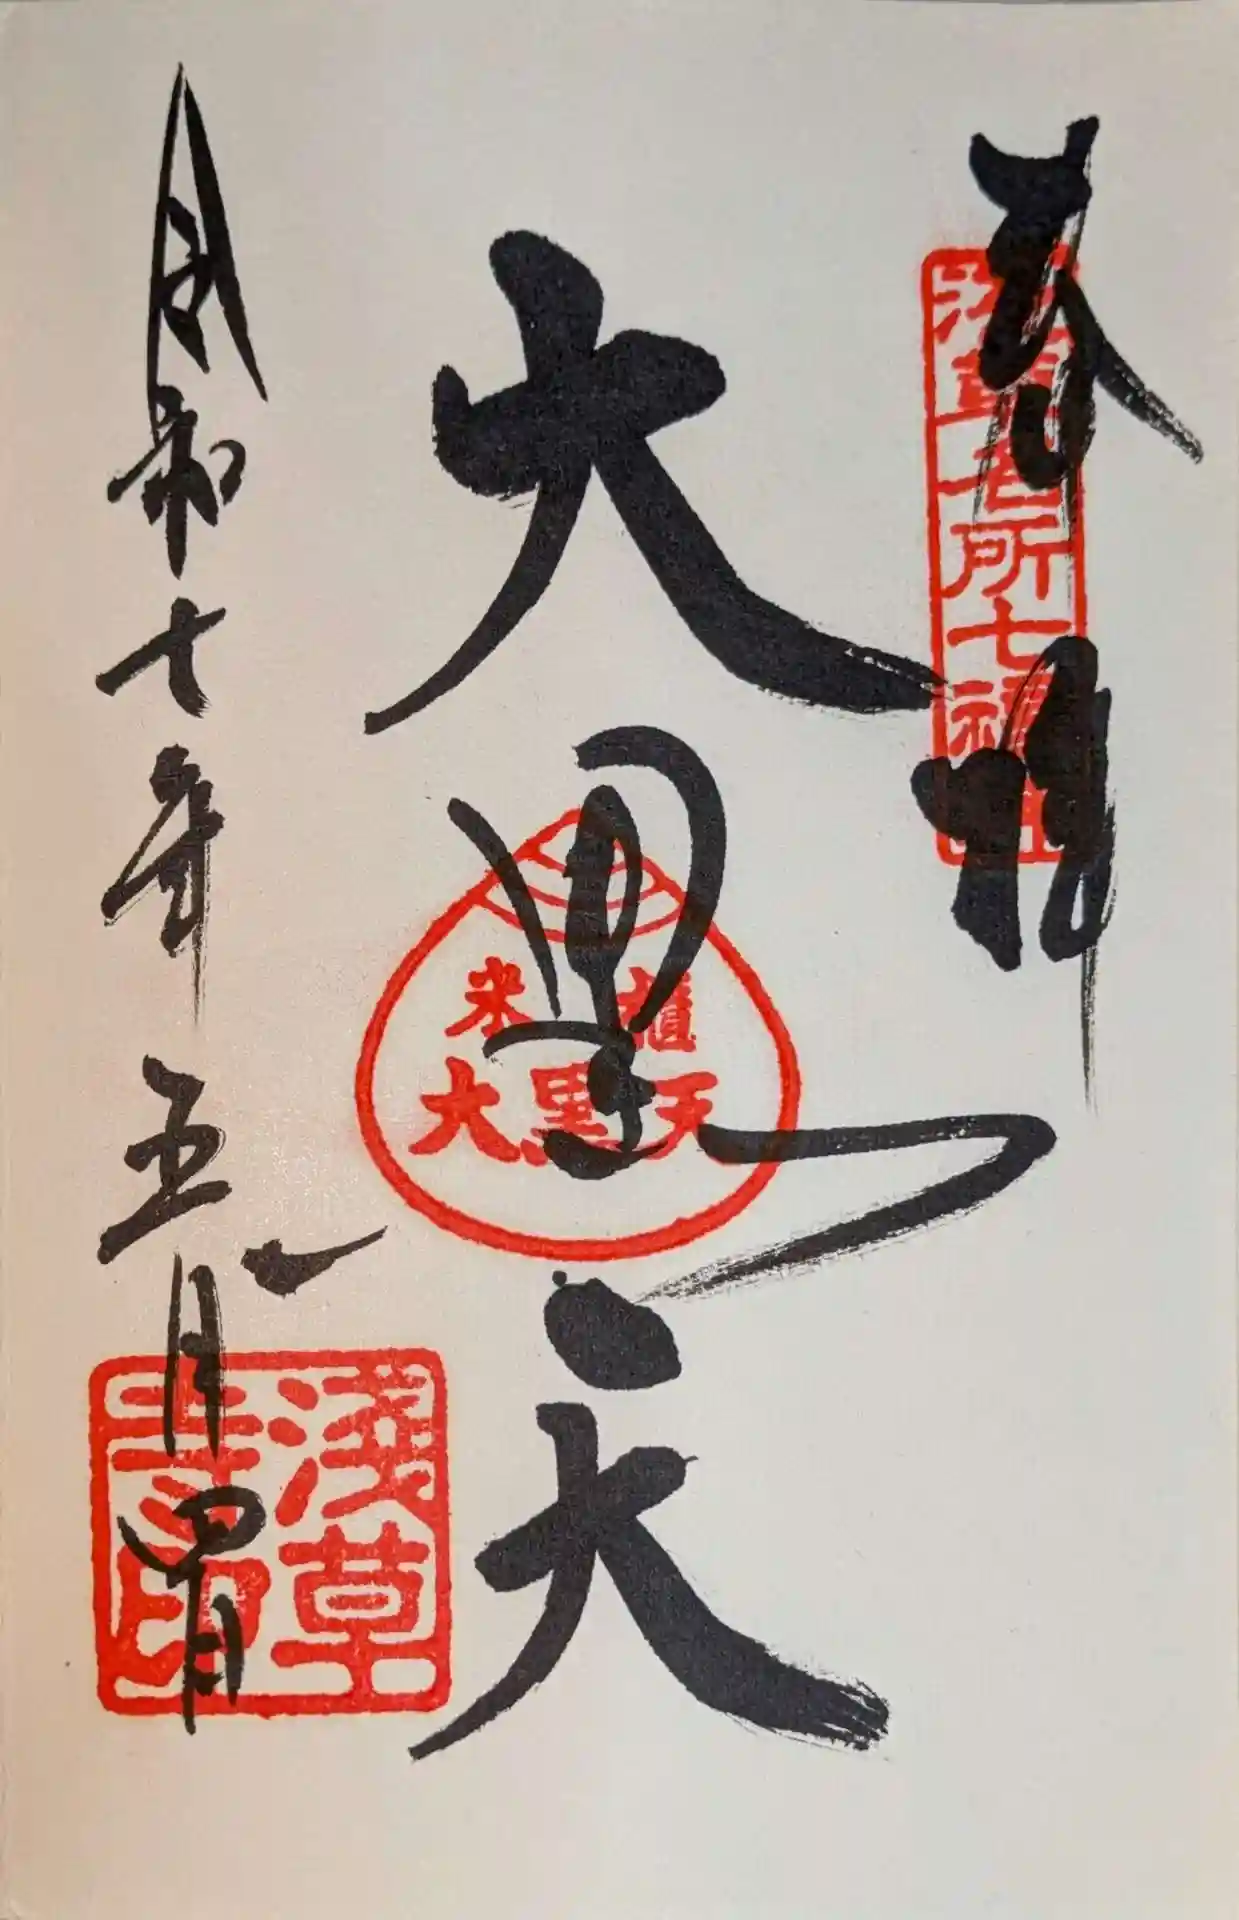 奉拝
浅草名所七福神
大黒天
米櫃
大黒天
令和七年五月四日
淺草寺印